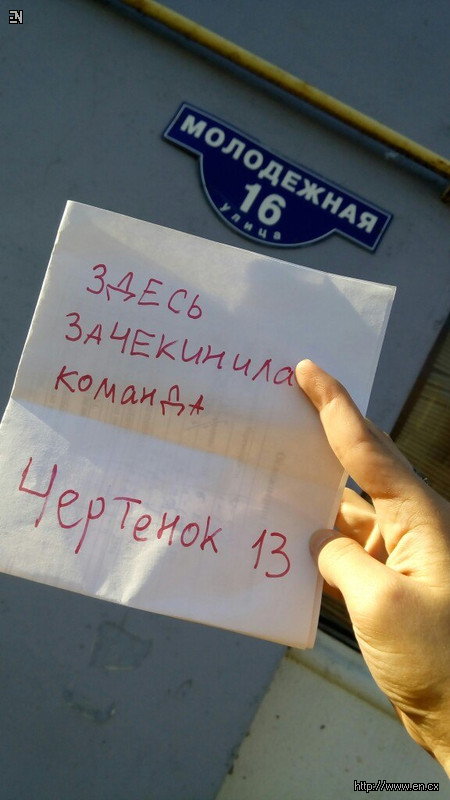 EN
МОЛОДЕЖНАЯ
16
улица
ЗДЕСЬ
ЗАЧЕКИНИЛА
КОМАНДА
Чертенок 13
http://www.en.cx